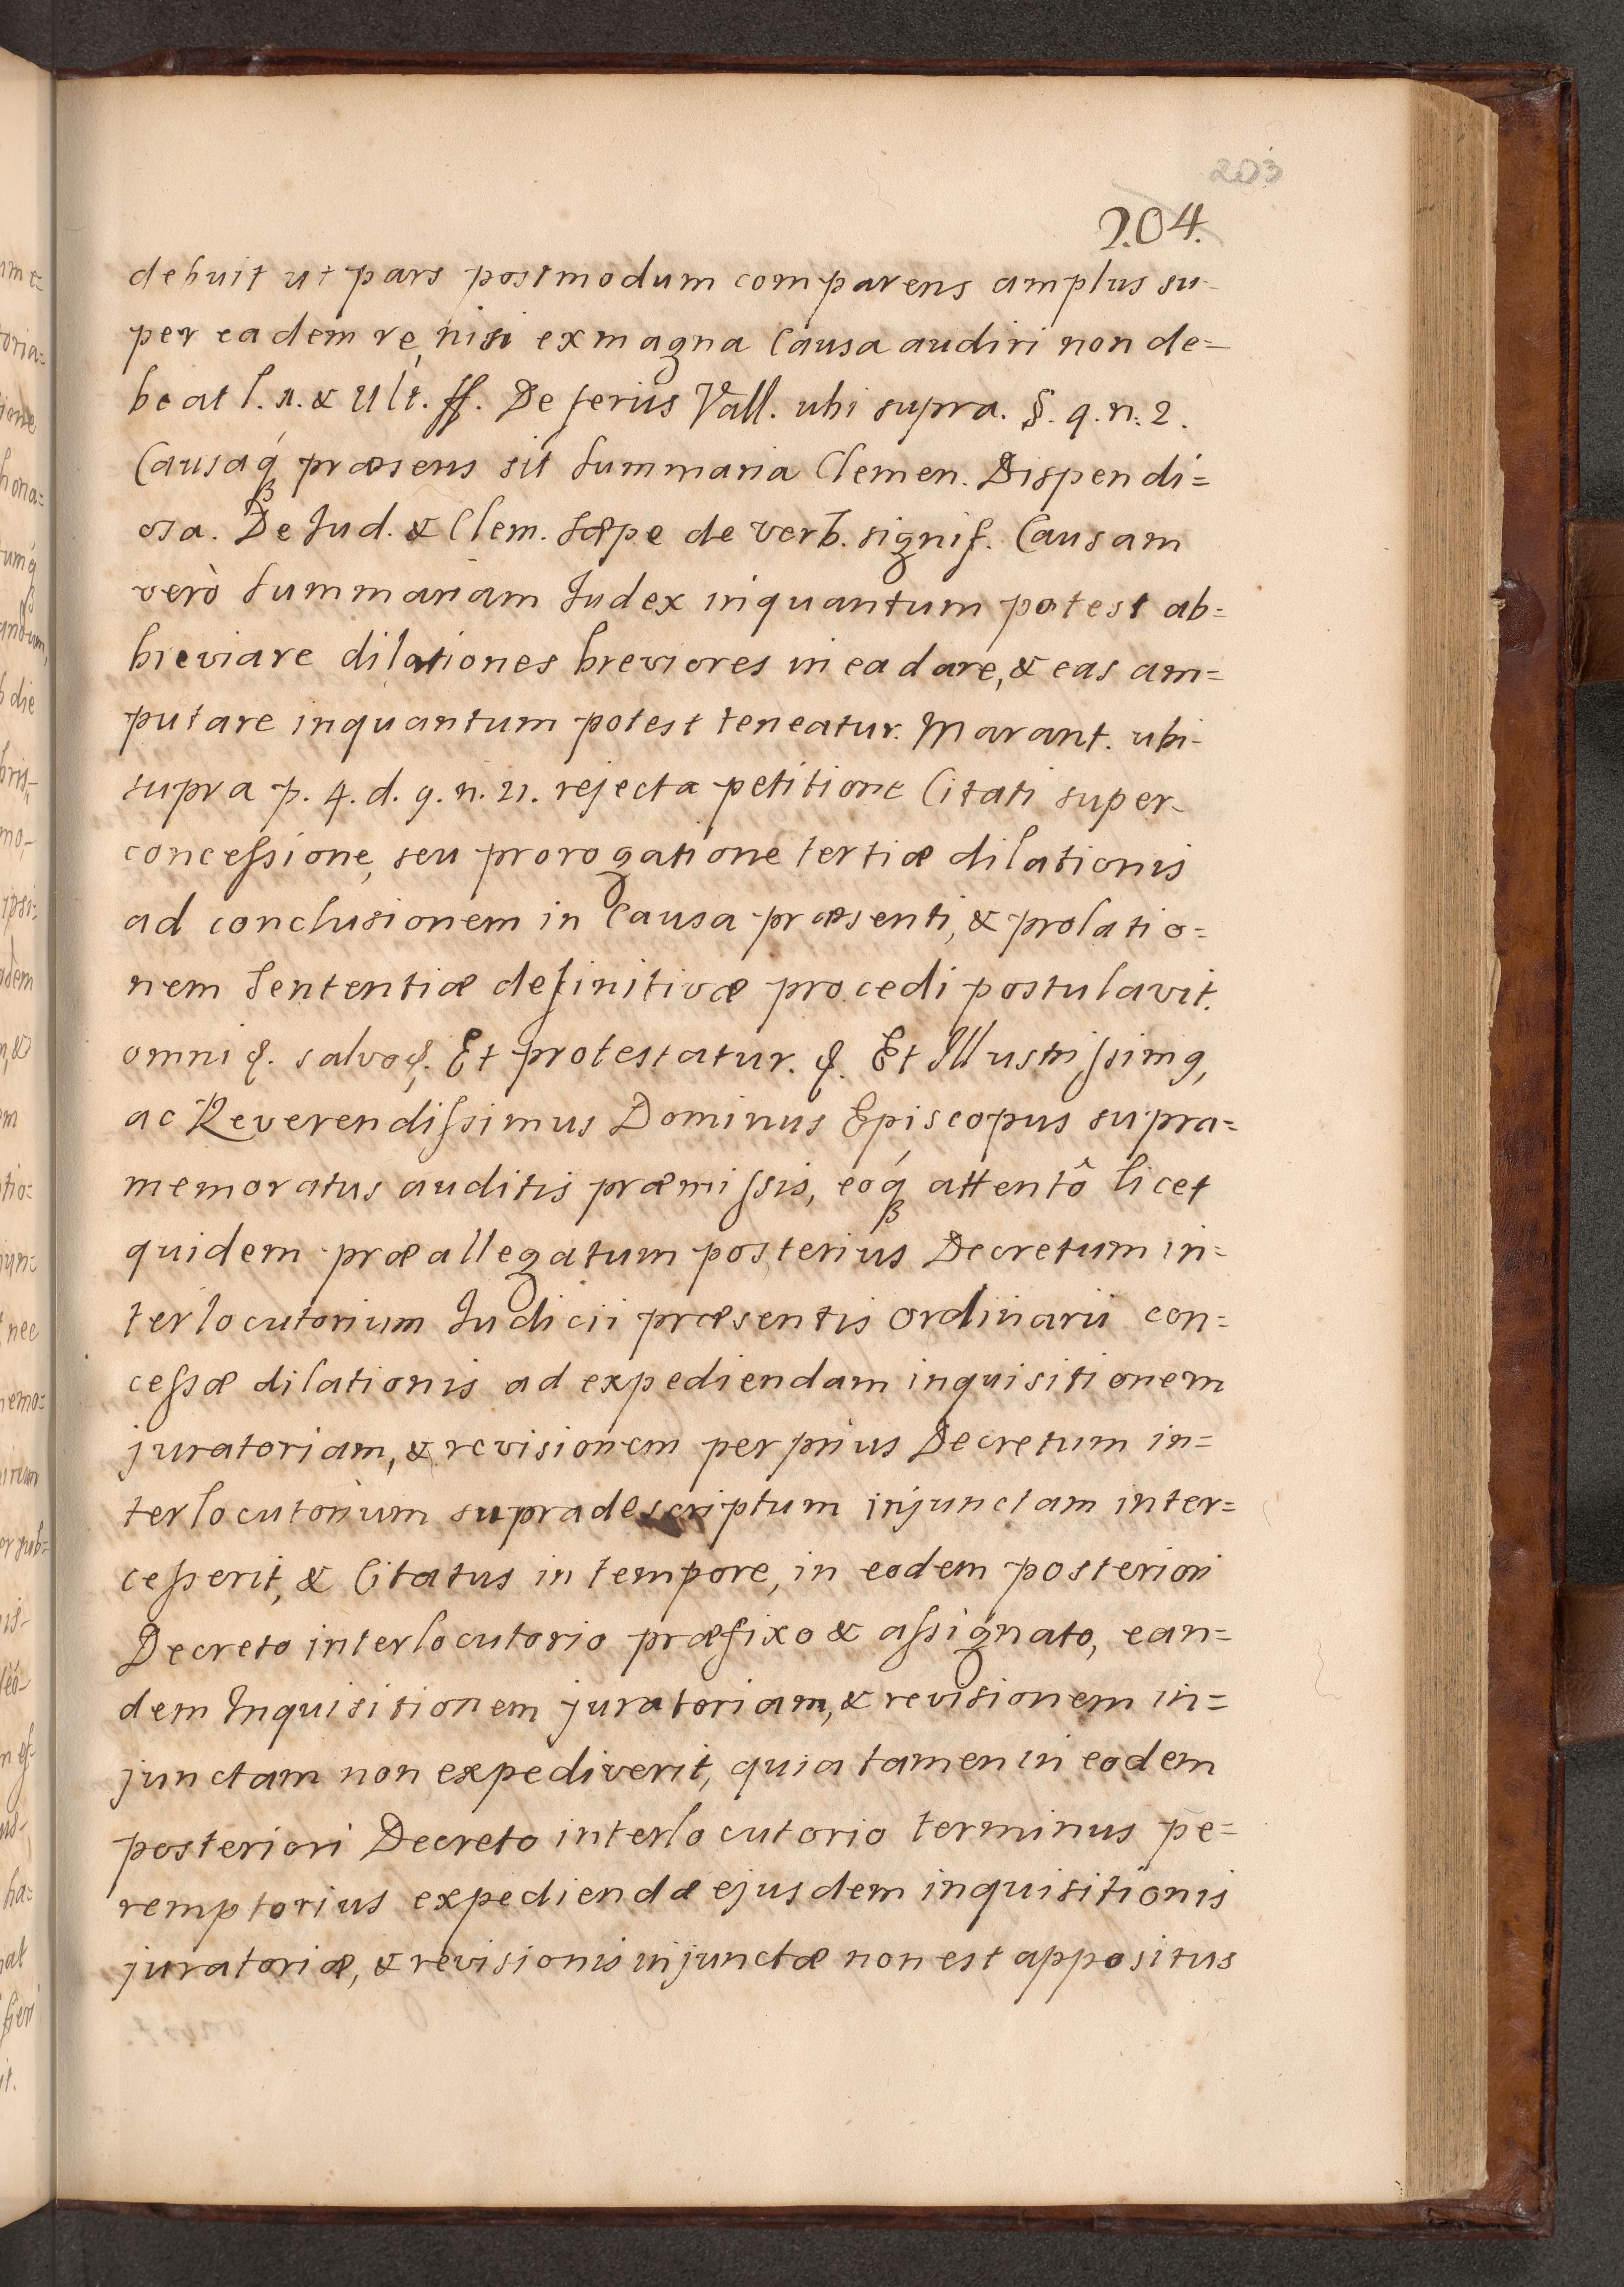 203
204.
debuit ut pars postmodum comparens amplus su-
per eadem re, nisi ex magna Causa audiri non de=
beat l. 1. & Ult. ff. De ferius Vall. ubi supra. §. 9. n. 2.
Causaq́ꝫ præsens sit summaria Clemen. Dispendi=
osa. De Jud. & Clem. sæpe de verb. signif. Causam
verò summariam Judex inquantum potest ab=
breviare dilationes breviores in ea dare, & eas am=
putare inquantum potest teneatur. Marant. ubi-
supra p. 4. d. 9. n. 21. rejecta petitione Citati super-
concessione, seu prorogatione tertiæ dilationis
ad conclusionem in Causa præsenti, & prolatio=
nem Sententiæ definitivæ procedi postulavit.
omni salvoq́ꝫ. Et protestatur. Et Illustrissimꝰ,
ac Reverendissimus Dominus Episcopus supra=
memoratus auditis præmissis, eoq́ꝫ attentô licet
quidem præallegatum posterius Decretum in=
terlocutorium Judicii præsentis ordinarii con=
cessæ dilationis ad expediendam inquisitionem
juratoriam, & revisionem per prius Decretum in=
terlocutorium supradescriptum injunctam inter=
cesserit, & Citatus in tempore, in eodem posteriori
Decreto interlocutorio præfixo & assignato, ean=
dem Inquisitionem juratoriam, & revisionem in=
junctam non expediverit, quia tamen in eodem
posteriori Decreto interlocutorio terminus pe=
remptorius expediendæ ejusdem inquisitionis
juratoriæ, & revisionis injunctæ non est appositus